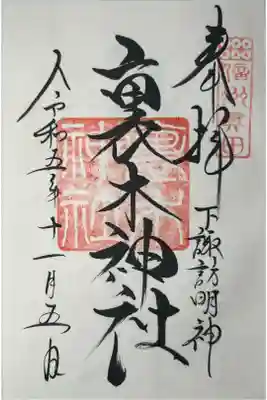 奉拝
下諏訪明神
裏木神社
令和五年十一月五日